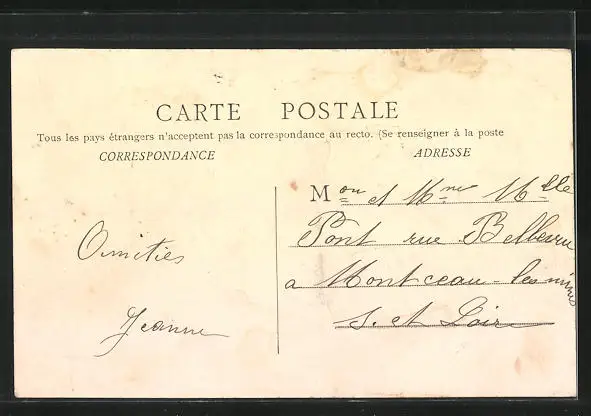 CARTE POSTALE
Tous les pays étrangers n'acceptent pas la correspondance au recto. (Se renseigner à la poste
CORRESPONDANCE
Amitiés
Jeanne
ADRESSE
Mon et Mme Mlle
Pont rue Bellevue
a Montceau-les-mines
S. et Loire